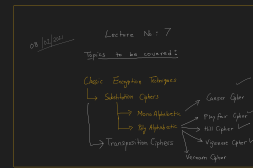 Lecture No: 7
08/02/2021
Topics to be covered:
Classic Encryption Techniques
Substitution Ciphers
Mono Alphabetic
Poly Alphabetic
Transposition Ciphers
Caesar Cipher
Play fair Cipher
Hill Cipher
Vigenere Cipher
Vernam Cipher